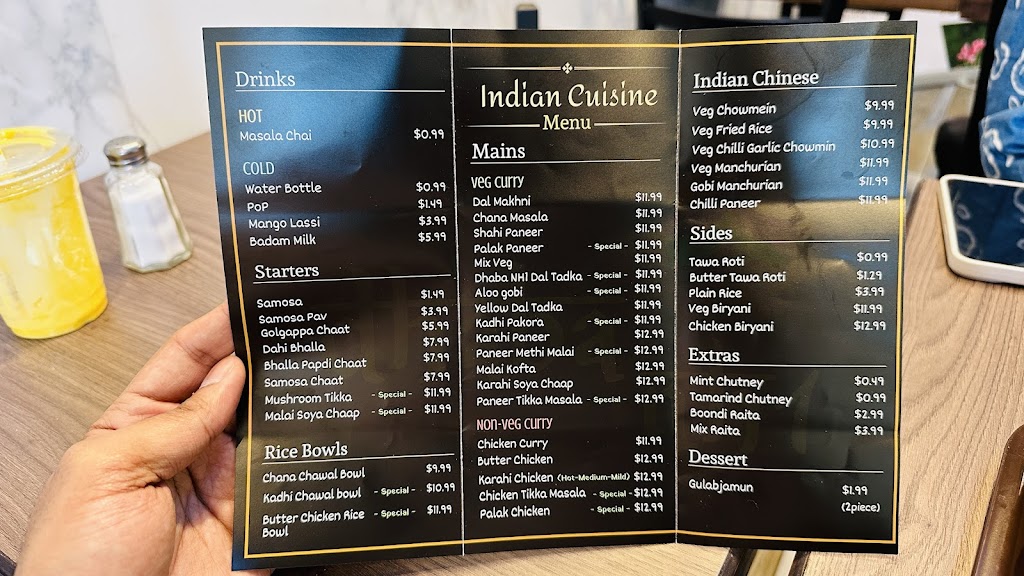 Drinks
HOT
Masala Chai $0.99
COLD
Water Bottle $0.99
PoP $1.49
Mango Lassi $3.99
Badam Milk $5.99
Starters
Samosa $1.49
Samosa Pav $3.99
Golgappa Chaat $5.99
Dahi Bhalla $7.99
Bhalla Papdi Chaat $7.99
Samosa Chaat $7.99
Mushroom Tikka - Special - $11.99
Malai Soya Chaap - Special - $11.99
Rice Bowls
Chana Chawal Bowl $9.99
Kadhi Chawal bowl - Special - $10.99
Butter Chicken Rice - Special - $11.99
Bowl
Indian Cuisine
Menu
Mains
Veg Curry
Dal Makhni $11.99
Chana Masala $11.99
Shahi Paneer $11.99
Palak Paneer - Special - $11.99
Mix Veg $11.99
Dhaba NH1 Dal Tadka - Special - $11.99
Aloo gobi - Special - $11.99
Yellow Dal Tadka $11.99
Kadhi Pakora - Special - $11.99
Karahi Paneer $12.99
Paneer Methi Malai - Special - $12.99
Malai Kofta $12.99
Karahi Soya Chaap $12.99
Paneer Tikka Masala - Special - $12.99
Non-Veg Curry
Chicken Curry $11.99
Butter Chicken $12.99
Karahi Chicken (Hot-Medium-Mild) $12.99
Chicken Tikka Masala - Special - $12.99
Palak Chicken - Special - $12.99
Indian Chinese
Veg Chowmein $9.99
Veg Fried Rice $9.99
Veg Chilli Garlic Chowmin $10.99
Veg Manchurian $11.99
Gobi Manchurian $11.99
Chilli Paneer $11.99
Sides
Tawa Roti $0.99
Butter Tawa Roti $1.29
Plain Rice $3.99
Veg Biryani $11.99
Chicken Biryani $12.99
Extras
Mint Chutney $0.49
Tamarind Chutney $0.99
Boondi Raita $2.99
Mix Raita $3.99
Dessert
Gulabjamun $1.99
(2piece)